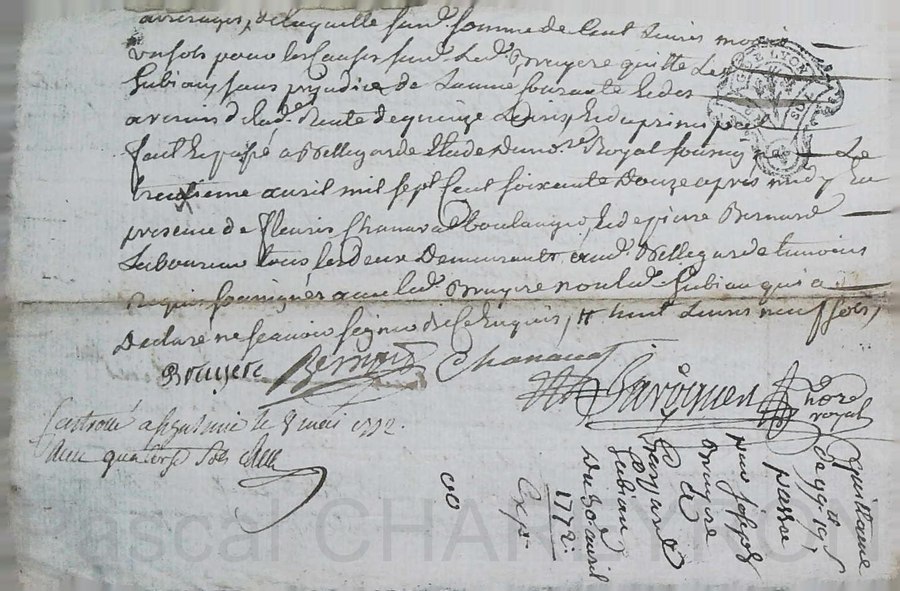 arrerages, de laquelle sus.e somme de cent livres moins
un sols pour les causes sus.e led. Bruyere quitte led.
Gubian sans prejudice de l'année courante et des
avenir de lad. Rente de quinze livres, et du principal
fait et passé a Bellegarde Etude du no.re Royal soussigné Le
trentieme avril mil sept cent soixante douze apres midy En
presence de fleuris Chanavat boulanger, et de pierre Bernard
Laboureur tous les deux Demeurants aud. Bellegarde temoins
requis soussignés avec led. Bruyere non led. Gubian qui a
Declaré ne scavoir signer de ce Enquis, # huit livres neuf sols,
Bruyere Bernard Chanavat
no.re royal
a le 8 mai 1772.
quatorze sols
Quittance
de 99 lt 19 s
passée
par joseph
Bruyere
a
Gubian
Du 30 avril
1772.
Exp.
GE. LYON
Pascal CHAR